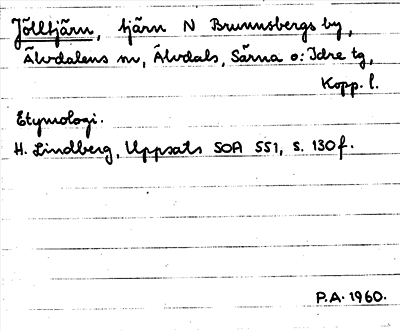 Jölltjärn, tjärn N Brunnsbergs by,
Älvdalens sn, Älvdals, Särna o. Idre tg,
Kopp. l.
Etymologi.
H. Lindberg, Uppsats SOA 551, s. 130 f.
P.A. 1960.